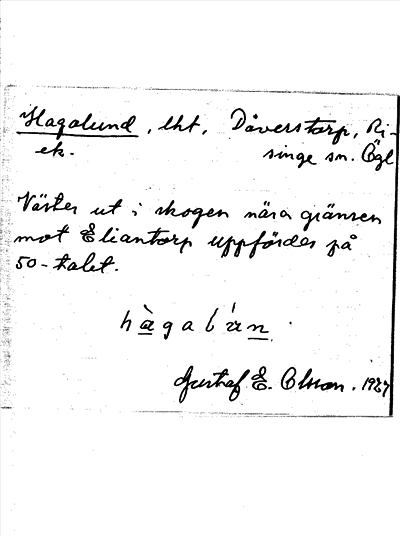 Hagalund, lht, Dåverstorp, Ri-
ek. singe sn. Ögl
Väster ut i skogen nära gränsen
mot Eliantorp uppfördes på
50-talet.
hàgalún
Gustaf E. Olsson. 1927